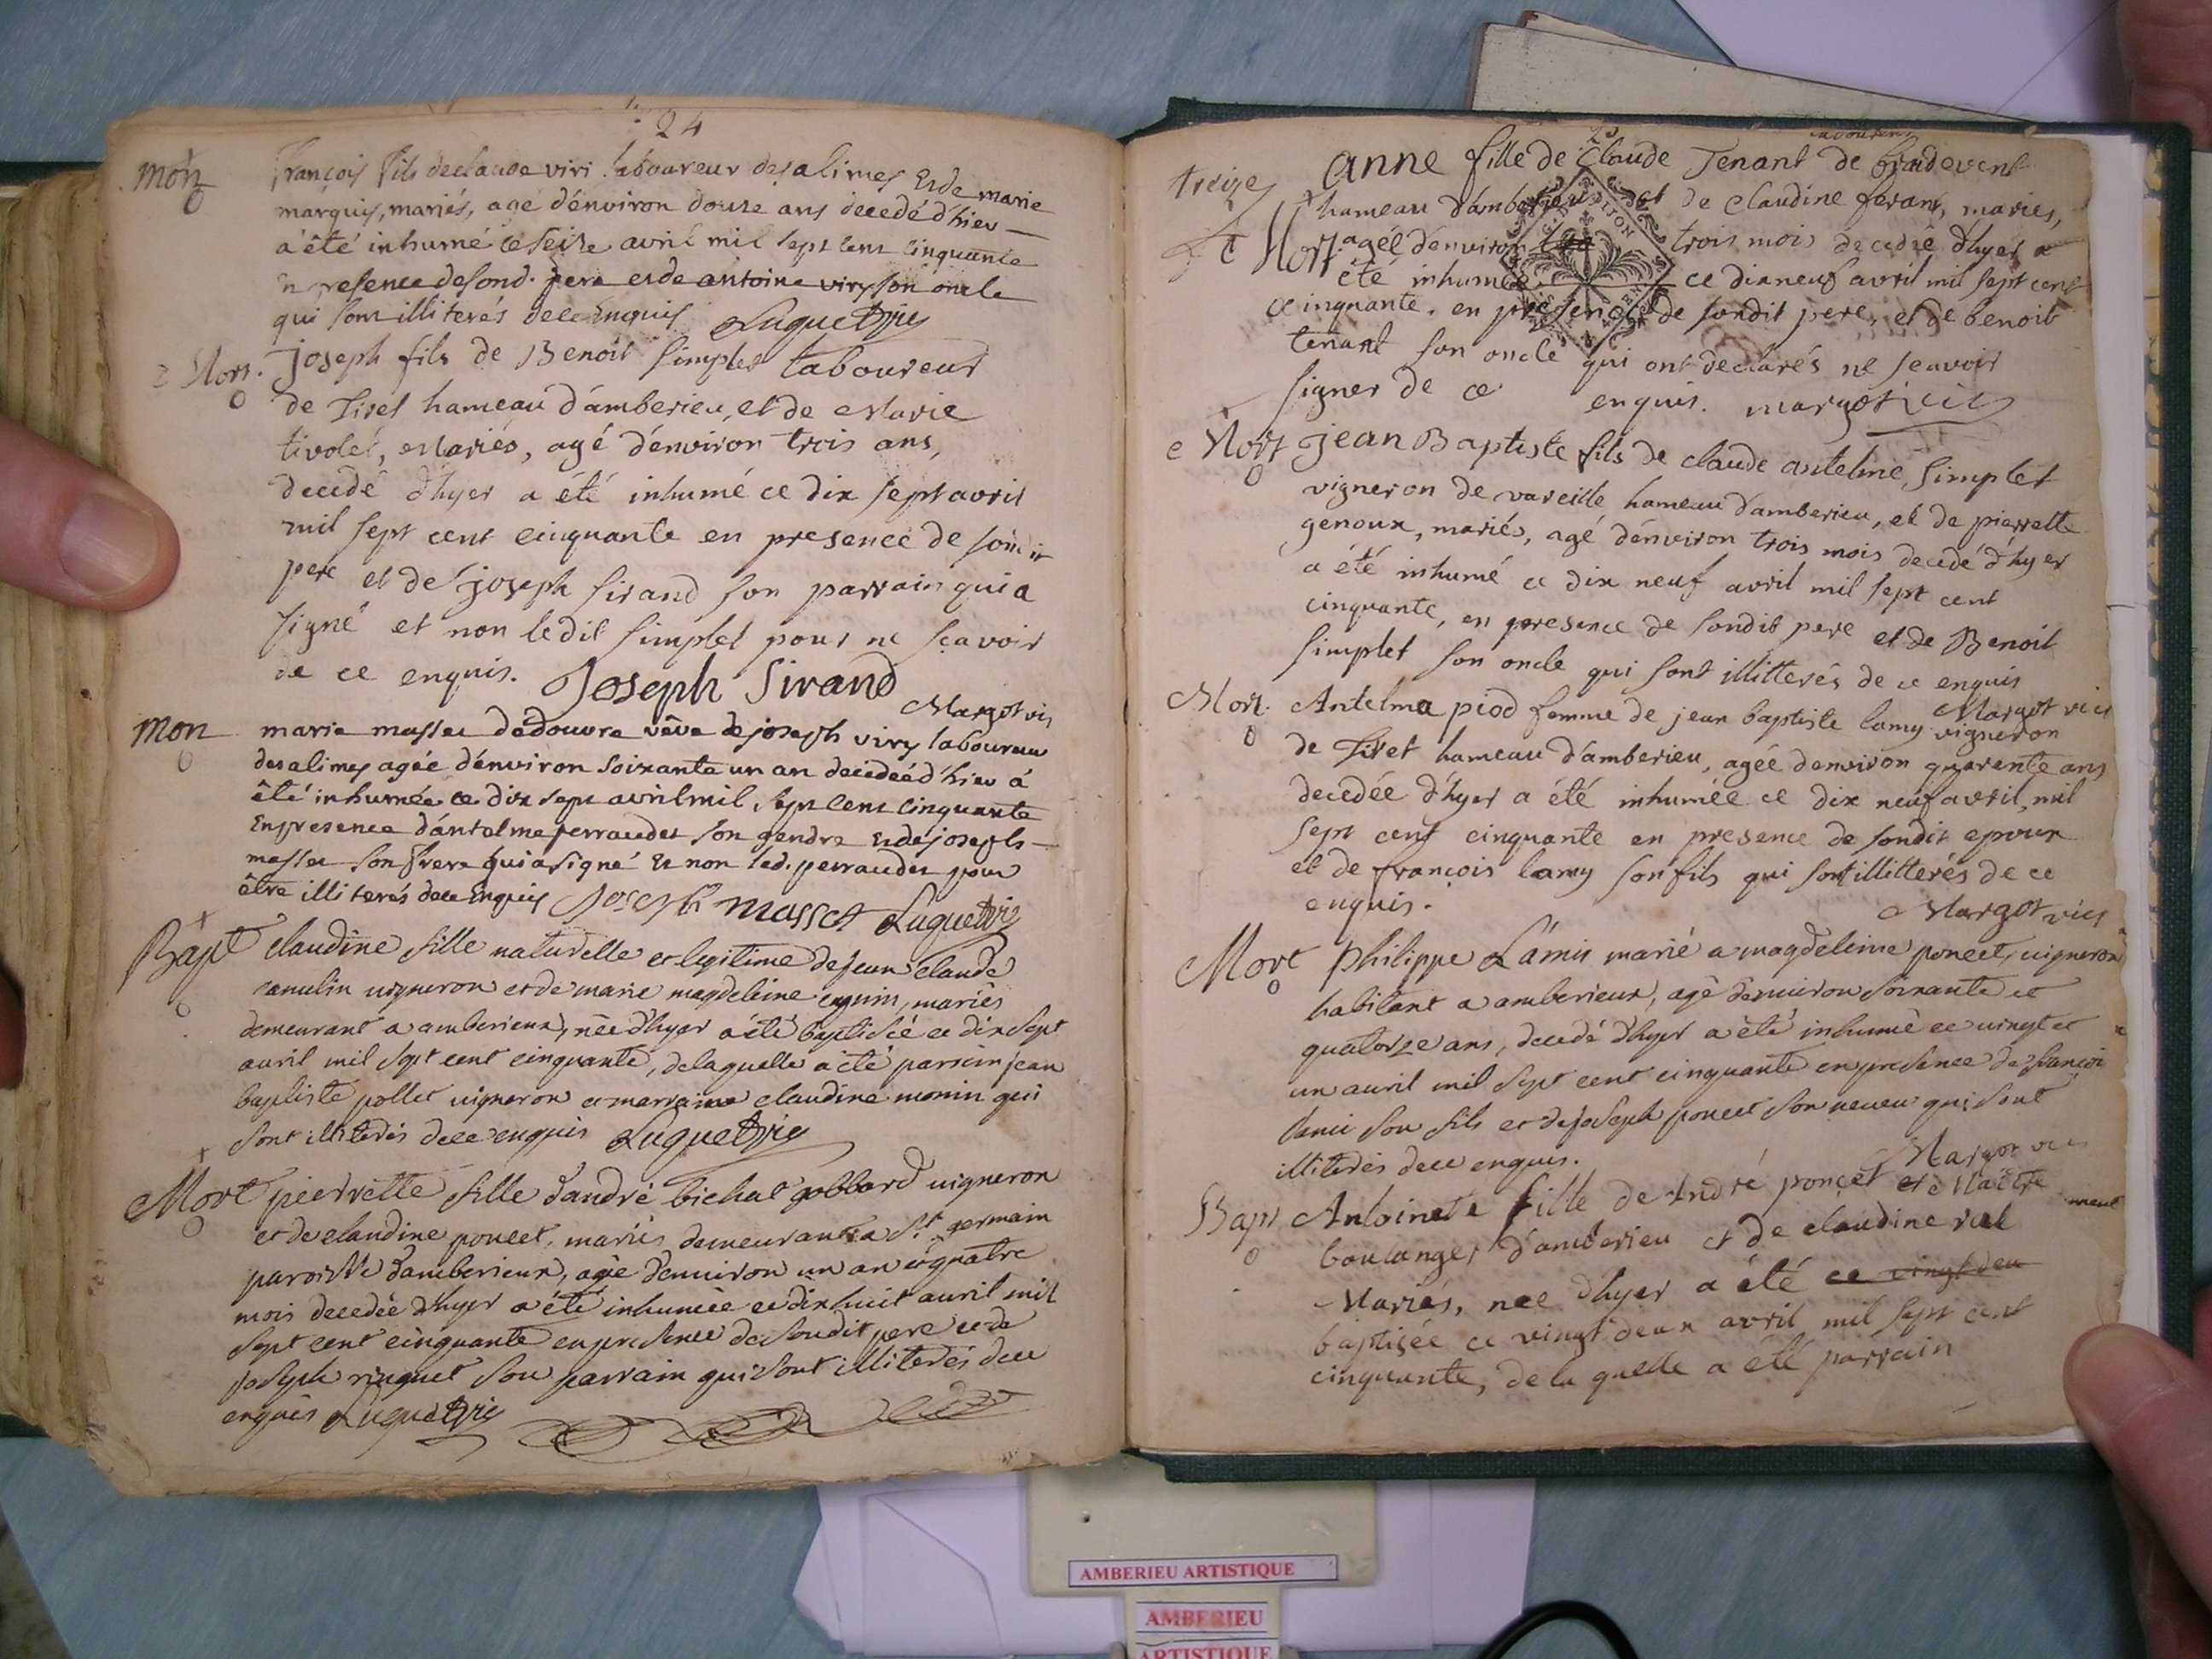 24
Mort
françois fils de claude viri laboureur des alimes Et de marie
marquis, mariés, agé d'énviron douze ans decedé d'hier
a été inhumé ce seize avril mil sept cens cinquante
En presence de sond. pere et de antoine viry son oncle
qui sont illiterés de ce Enquis Luquet vic
Mort.
joseph fils de Benoit simplet laboureur
de Tiret hameau d'amberieu, et de Marie
tivolet, Mariés, agé d'énviron trois ans,
decedé d'hyer a été inhumé ce dix sept avril
mil sept cent cinquante en presence de sondit
pere et de joseph sirand son parrain qui a
signé et non ledit simplet pour ne sçavoir
de ce enquis. Joseph Sirand
Margot vic
Mort
marie masset dedouvre vêve de joseph viry laboureur
des alimes agée d'énviron soixante un an decedée d'hier a
été inhumée ce dix sept avril mil sept cens cinquante
En presence d'antelme perraudet son gendre Et de joseph
masset son frere qui a signé Et non led. perraudet pour
être illiterés de ce Enquis Joseph masset Luquet vic
Bapt
claudine fille naturelle et legitime de jean claude
vigneron et de marie magdeleine mariés
demeurant a amberieux, née d'hyer a été baptisée ce dix sept
avril mil sept cent cinquante, de laquelle a été parrain jean
baptiste pollet vigneron et marraine claudine monin qui
sont illiterés de ce enquis Luquet vic
Mort
pierrette fille d'andré bichat gobbard vigneron
et de claudine poncet, mariés demeurant a St germain
paroisse d'amberieux, agée d'environ un an et quatre
mois decedée d'hyer a été inhumée ce dix huit avril mil
sept cent cinquante en presence de sondit pere et de
joseph ruquet son parrain qui sont illiterés de ce
enquis Luquet vic
treize
laboureur
anne fille de Claude Tenant de bradevent
hameau d'amberieu et de claudine ferant, mariés,
Mort
agée d'environ trois mois decedée d'hyer a
été inhumée ce dix neuf avril mil sept cent
cinquante. en presence de sondit pere, et de benoit
tenant son oncle qui ont declarés ne sçavoir
signer de ce enquis. margot vic
DIJON
Mort
jean Baptiste fils de claude antelme, simplet
vigneron de vareille hameau d'amberieu, et de pierrette
genoux, mariés, agé d'énviron trois mois decedé d'hyer
a été inhumé ce dix neuf avril mil sept cent
cinquante, en presence de sondit pere et de Benoit
simplet son oncle qui sont illitterés de ce enquis
Margot vic
Mort.
Antelma piod femme de jean baptiste lamy vigneron
de Tiret hameau d'amberieu, agée d'environ quarente ans
decedée d'hyer a été inhumée ce dix neuf avril, mil
sept cent cinquante en presence de sondit epoux
et de françois lamy son fils qui sont illitterés de ce
enquis. Margot vic
Mort
philippe L'ámis marié a magdeleine poncet, vigneron
habitant a amberieux, agé d'environ soixante et
quatorze ans, decedé d'hyer a été inhumé ce vingt et
un avril mil sept cent cinquante en presence de françois
lami son fils et de joseph poncet son neveu qui sont
illiterés de ce enquis.
Margot vic
Bapt
Antoinete fille de André ponçet Maitre
boulanger d'amberieu et de claudine
Mariés, née d'hyer a été ce vingt deu
baptisée ce vingt deux avril mil sept cent
cinquante, de la quelle a été parrain
AMBERIEU ARTISTIQUE
AMBERIEU
ARTISTIQUE